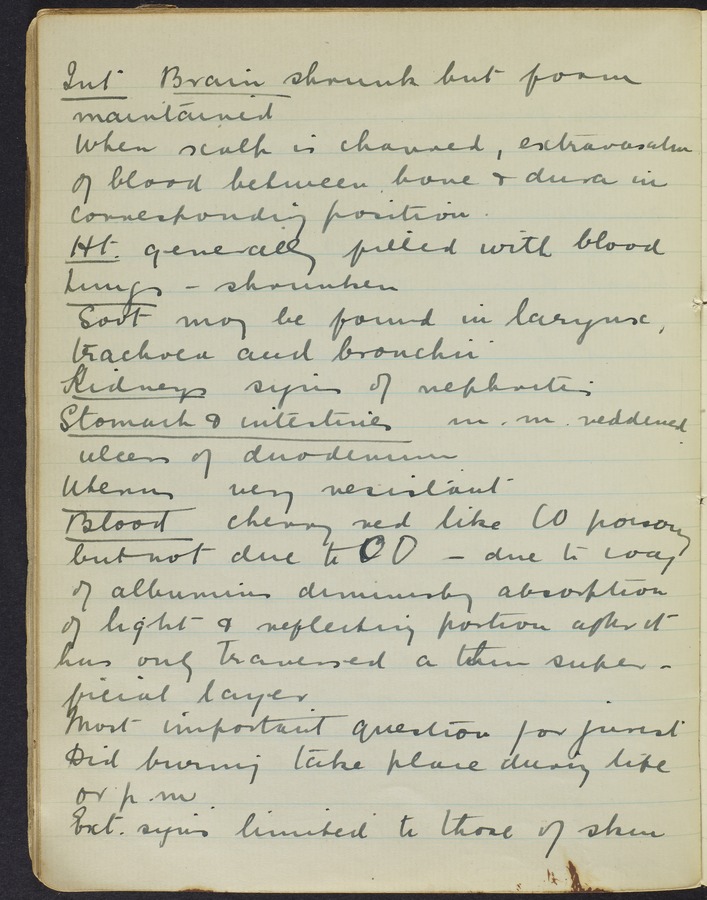 Int Brain shrunk but form
maintained
When scalp is charred, extravasation
of blood between bone & dura in
corresponding position.
Ht. generally filled with blood
Lungs - shrunken
Soot may be found in larynx,
trachoea and bronchii
Kidneys signs of nephritis
Stomach & intestines m.m. reddened
ulcers of duodenum
Uterus very resistant
Blood cherry red like CO poisong
but not due to CO - due to coag
of albumins diminishg absorption
of light & reflecting portion after it
has only traversed a thin super-
ficial layer
Most important question for jurist
Did burning take place during life
or p.m
Ext. signs limited to those of skin